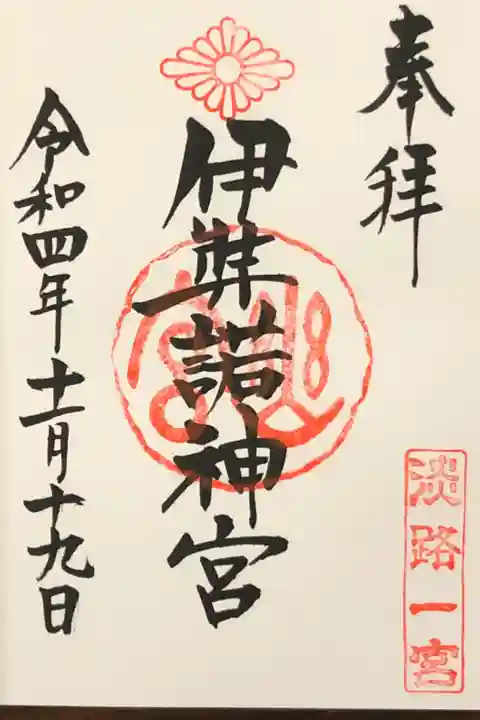 奉拝
伊弉諾神宮
令和四年十一月十九日
淡路一宮